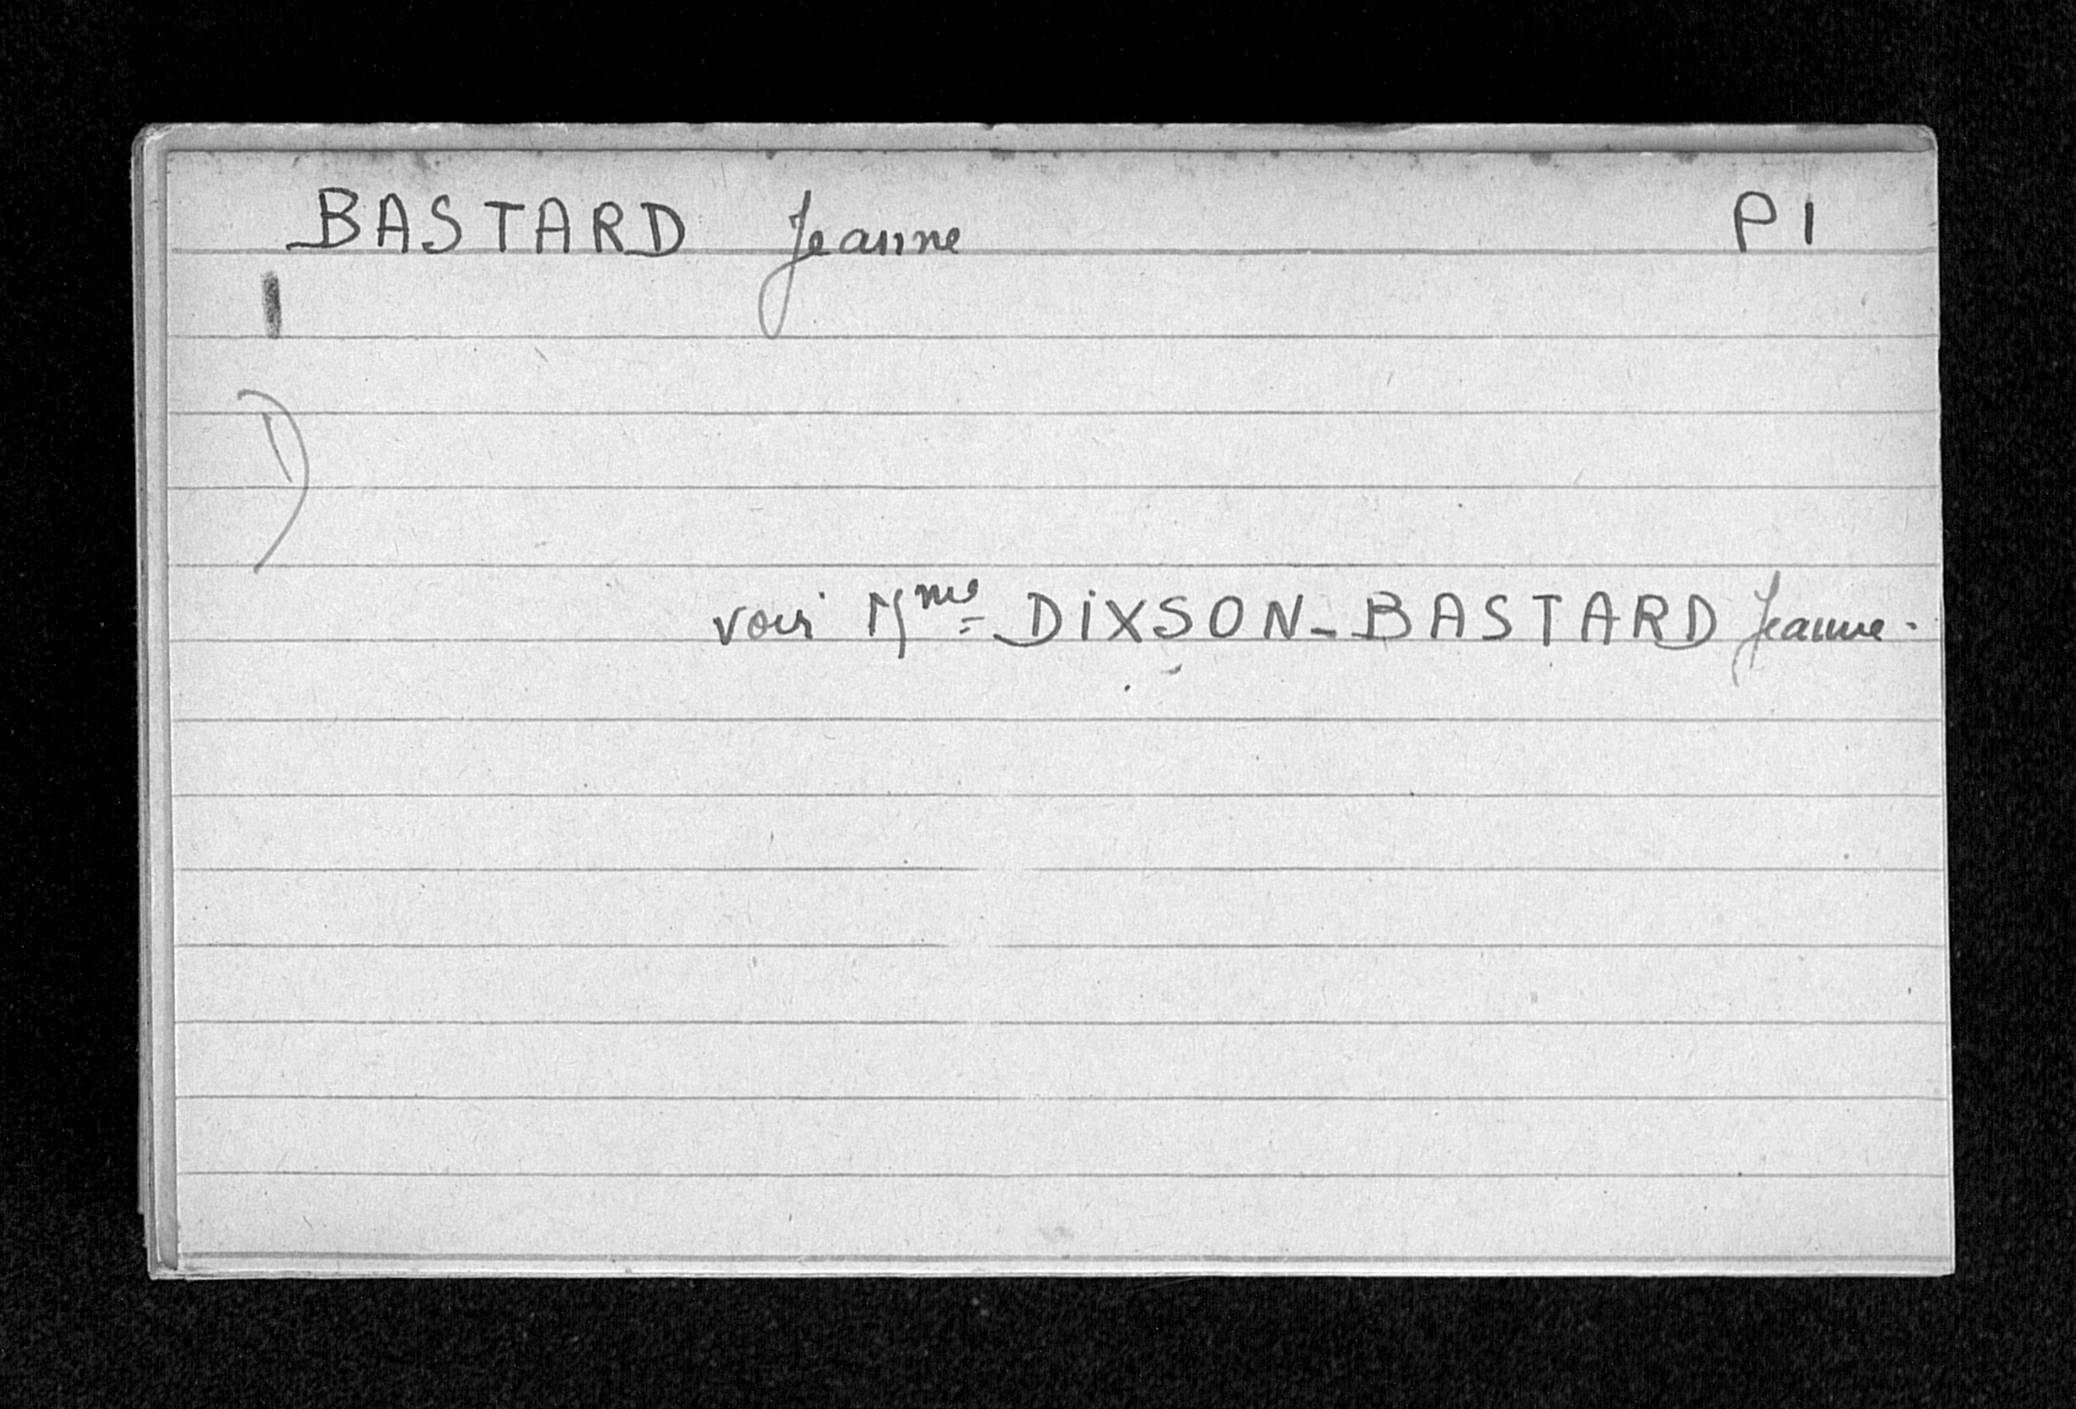 BASTARD Jeanne P1
voir Mme DIXSON-BASTARD Jeanne.